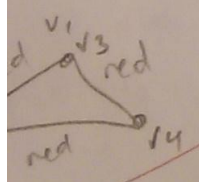 v1
d
v3
red
red
v4